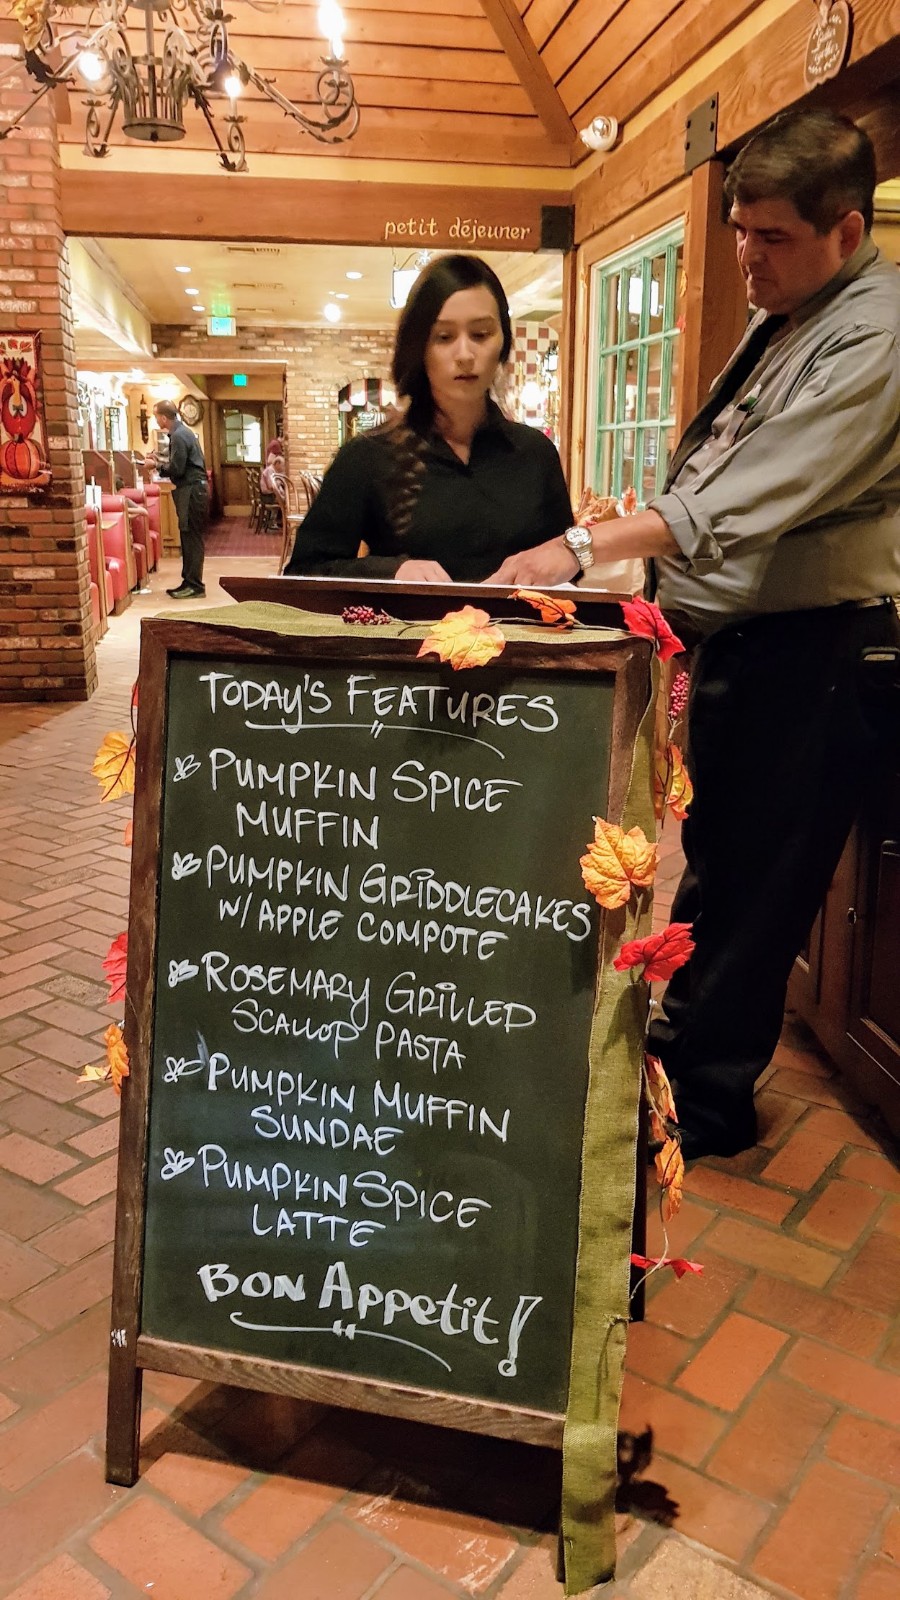 petit déjeuner
TODAY'S FEATURES
PUMPKIN SPICE
MUFFIN
PUMPKIN GRIDDLECAKES
W/ APPLE COMPOTE
ROSEMARY GRILLED
SCALLOP PASTA
PUMPKIN MUFFIN
SUNDAE
PUMPKIN SPICE
LATTE
BON APPetit!